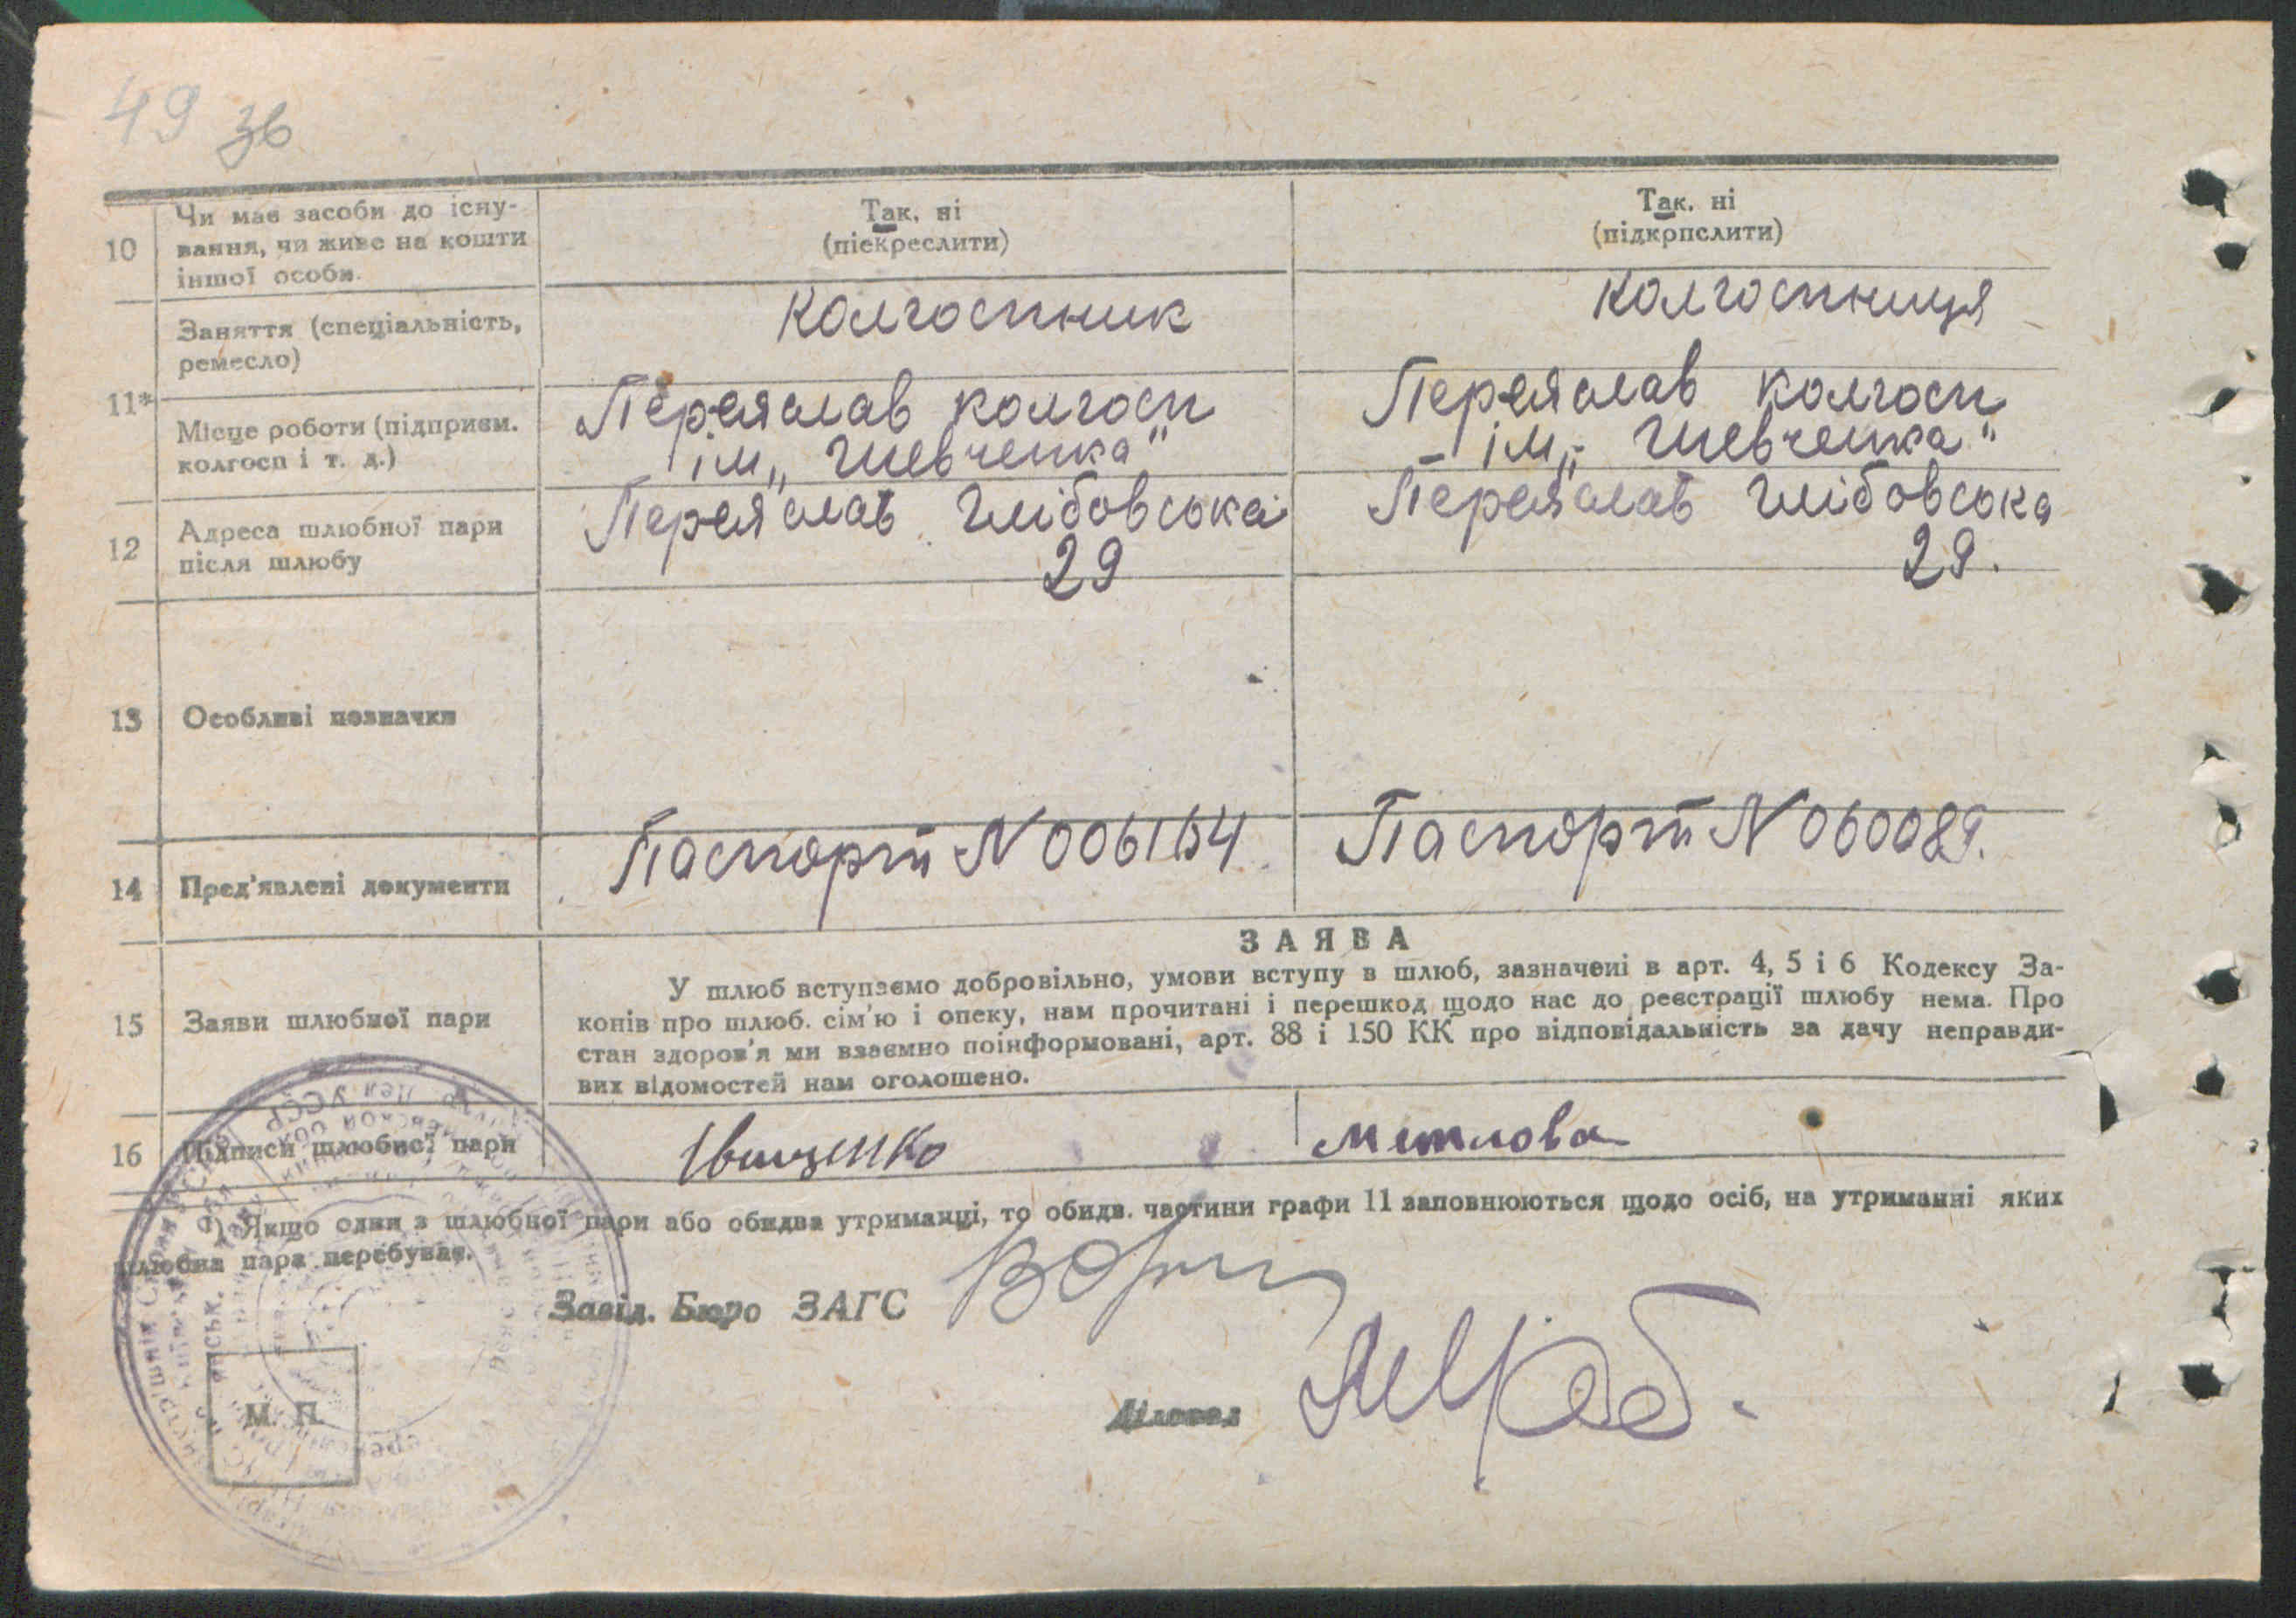 49 зв
10
Чи має засоби до існу-
вання, чи живе на кошти
іншої особи.
Так, ні
(піекреслити)
Так, ні
(підкрпслити)
11*
Заняття (спеціальність,
ремесло)
Колгоспник
Колгоспниця
Місце роботи (підприєм.
колгосп і т. д.)
Переяслав колгосп
ім „ Шевченка"
Переяслав колгосп
ім „ Шевченка"
12
Адреса шлюбної пари
після шлюбу
Переяслав Глібовська
29
Переяслав Глібовська
29.
13
Особливі позначки
14
Пред'явлені документи
Паспорт N 006164
Паспорт N 060089.
15
Заяви шлюбної пари
ЗАЯВА
У шлюб вступаємо добровільно, умови вступу в шлюб, зазначені в арт. 4, 5 і 6 Кодексу За-
конів про шлюб. сім'ю і опеку, нам прочитані і перешкод щодо нас до реєстрації шлюбу нема. Про
стан здоров'я ми взаємно поінформовані, арт. 88 і 150 КК про відповідальність за дачу неправди-
вих відомостей нам оголошено.
16
Підписи шлюбної пари
Іващенко
Метлова
*) Якщо один з шлюбної пари або обидва утриманці, то обидв. частини графи 11 заповнюються щодо осіб, на утриманні яких
шлюбна пара перебуває.
Завід. Бюро ЗАГС
Діловод
М. П.